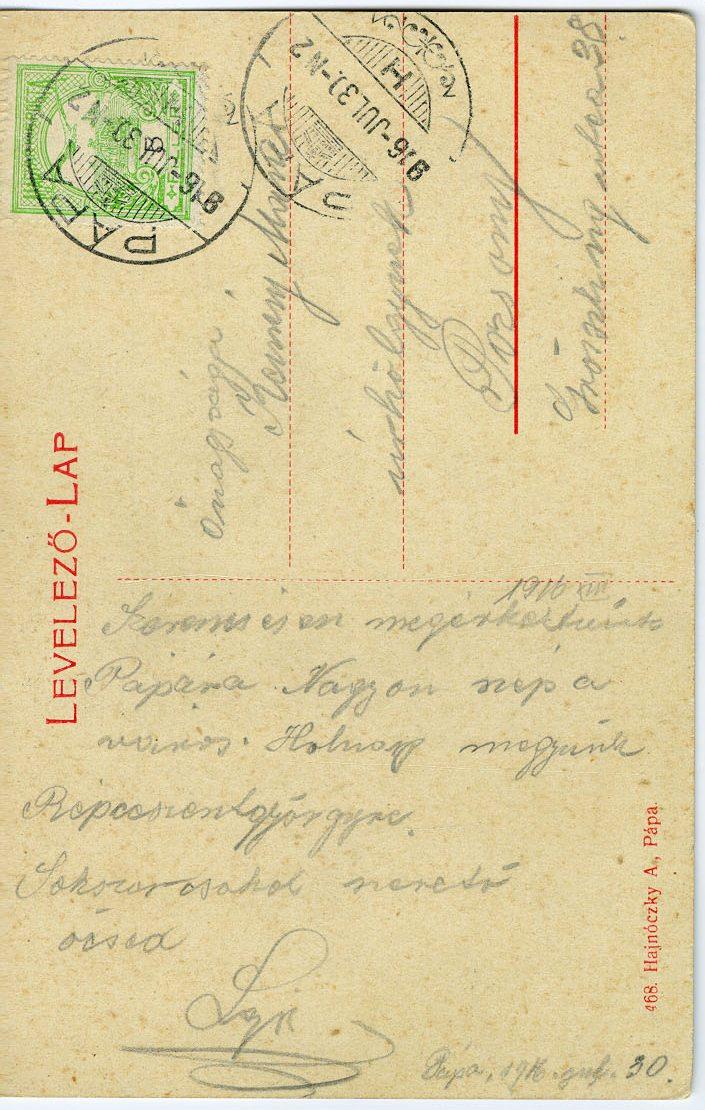 LEVELEZŐ-LAP
PÁPA
916-JUL.31-N2
PÁPA
916-JUL.31-N2
H
Őnagysága
Kemény
úrhölgynek
Pozsony
utca 38
1916 VIII
Szerencsésen megérkeztünk
Pápára Nagyon szép a
város. Holnap megyünk
Répceszentgyörgyre.
Sokszor csókol szerető
öcséd
Pápa, 1916. júl. 30.
468. Hajnóczky A., Pápa.